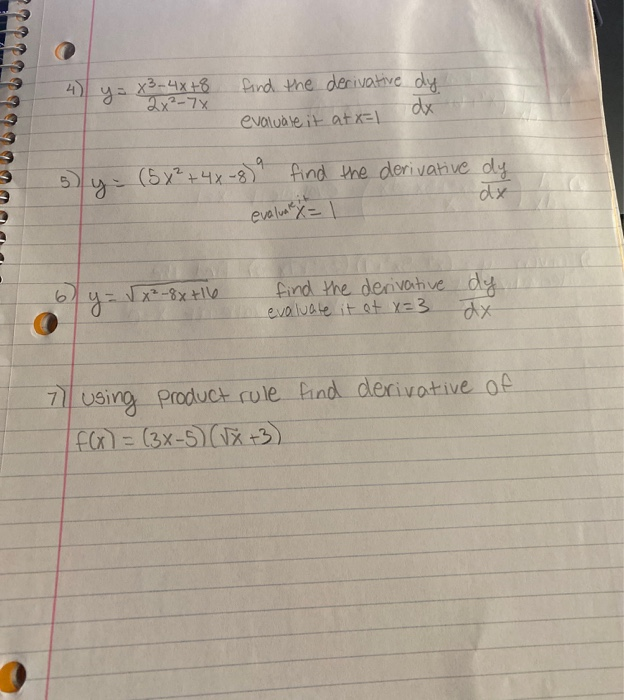 4) y = x³-4x+8 / 2x²-7x find the derivative dy/dx
evaluate it at x=1
5) y = (5x²+4x-8)⁹ find the derivative dy/dx
evaluate it x=1
6) y = √x²-8x+16 find the derivative dy/dx
evaluate it at x=3
7) using product rule find derivative of
f(x) = (3x-5)(√x+3)